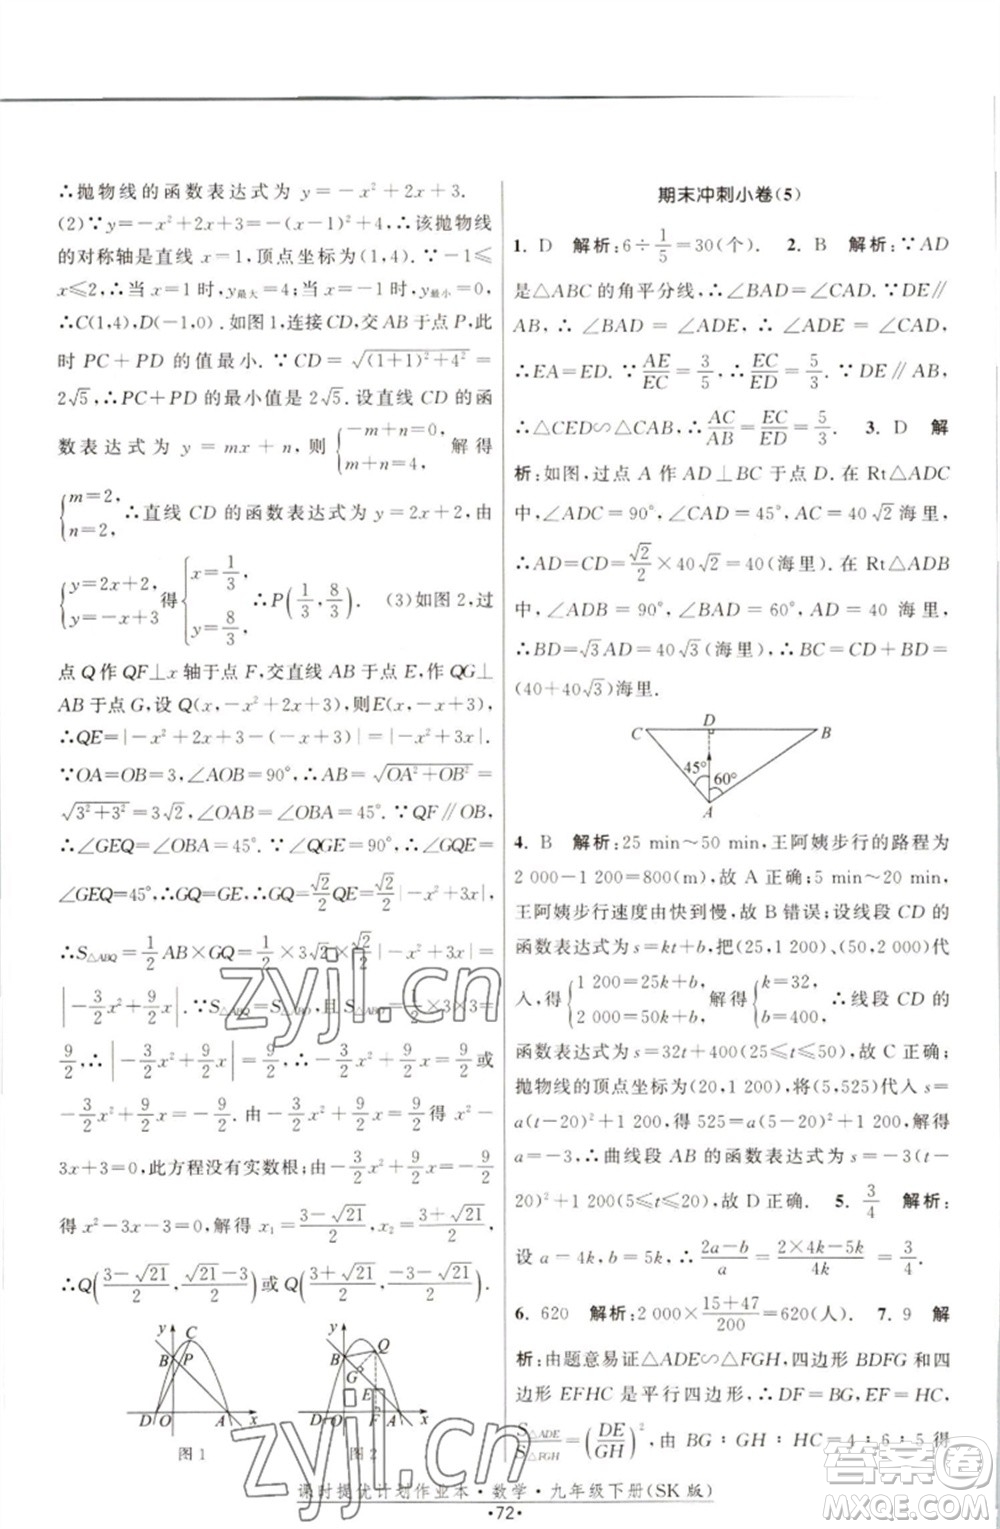 ∴抛物线的函数表达式为 y=-x²+2x+3.
(2)∵y=-x²+2x+3,∴该抛物线
的对称轴是直线 x=1,顶点坐标为(1,4).∵-1≤
x≤2,∴当 x=1 时,y最大=4;当 x=-1 时,y最小=0,
∴C(1,4),D(-1,0).如图1,连接CD,交AB于点P,此
时 PC+PD 的值最小.∵CD=√((1+1)²+4²)=
2√5,∴PC+PD 的最小值是 2√5.设直线 CD 的函
数表达式为 y=mx+n,则{-m+n=0, m+n=4, 解得
{m=2, n=2, ∴直线 CD 的函数表达式为 y=2x+2,由
{y=2x+2, y=-x+3 得{x=1/3, y=8/3, ∴P(1/3,8/3). (3)如图2,过
点Q作QF⊥x轴于点F,交直线AB于点E,作QG⊥
AB于点G,设Q(x,-x²+2x+3),则E(x,-x+3),
∴QE=|-x²+2x+3-(-x+3)|=|-x²+3x|.
∵OA=OB=3,∠AOB=90°,∴AB=√(OA²+OB²)=
√(3²+3²)=3√2,∠OAB=∠OBA=45°.∵QF∥OB,
∴∠GEQ=∠OBA=45°.∵∠QGE=90°,∴∠GQE=
∠GEQ=45°,∴QG=GE=√2/2 QE=√2/2|-x²+3x|,
∴S△ABQ=1/2 AB×GQ=1/2×3√2×√2/2|-x²+3x|=
|-3/2 x²+9/2 x|.∵S△ABQ=S△ABO,且S△ABO=1/2×3×3=
9/2,∴|-3/2 x²+9/2 x|=9/2,∴-3/2 x²+9/2 x=9/2或
-3/2 x²+9/2 x=-9/2.由-3/2 x²+9/2 x=9/2得x²-
3x+3=0,此方程没有实数根;由-3/2 x²+9/2 x=-9/2
得 x²-3x-3=0,解得 x₁=(3-√21)/2,x₂=(3+√21)/2,
∴Q((3-√21)/2,(√21-3)/2)或Q((3+√21)/2,(-3-√21)/2).
y
C
B
P
D O A x
图1
y
B
Q
G
E
O F A x
图2
期末冲刺小卷(5)
1. D 解析:6÷1/5=30(个). 2. B 解析:∵AD
是△ABC的角平分线,∴∠BAD=∠CAD.∵DE∥
AB,∴∠BAD=∠ADE,∴∠ADE=∠CAD,
∴EA=ED.∵AE/EC=3/5,∴EC/ED=5/3.∵DE∥AB,
∴△CED∽△CAB,∴AC/AB=EC/ED=5/3. 3. D 解
析:如图,过点A作AD⊥BC于点D.在Rt△ADC
中,∠ADC=90°,∠CAD=45°,AC=40√2海里,
∴AD=CD=√2/2×40√2=40(海里).在Rt△ADB
中,∠ADB=90°,∠BAD=60°,AD=40海里,
∴BD=√3AD=40√3(海里),∴BC=CD+BD=
(40+40√3)海里.
C D B
45° 60°
A
4. B 解析:25 min～50 min,王阿姨步行的路程为
2 000-1 200=800(m),故A正确;5 min～20 min,
王阿姨步行速度由快到慢,故B错误;设线段CD的
函数表达式为s=kt+b,把(25,1 200)、(50,2 000)代
入,得{1 200=25k+b, 2 000=50k+b, 解得{k=32, b=400, ∴线段CD的
函数表达式为s=32t+400(25≤t≤50),故C正确;
抛物线的顶点坐标为(20,1 200),将(5,525)代入s=
a(t-20)²+1 200,得 525=a(5-20)²+1 200,解得
a=-3,∴曲线段AB的函数表达式为s=-3(t-
20)²+1 200(5≤t≤20),故D正确. 5. 3/4 解析:
设a=4k,b=5k,∴(2a-b)/a=(2×4k-5k)/4k=3/4.
6. 620 解析:2 000×(15+47)/200=620(人). 7. 9 解
析:由题意易证△ADE∽△FGH,四边形BDFG和四
边形EFHC是平行四边形,∴DF=BG,EF=HC,
S△ADE/S△FGH=(DE/GH)².由BG∶GH∶HC=4∶6∶5得
课时提优计划作业本·数学·九年级下册(SK版)
·72·
zyjl.cn
zyjl.cn
答案圈
MXQE.COM